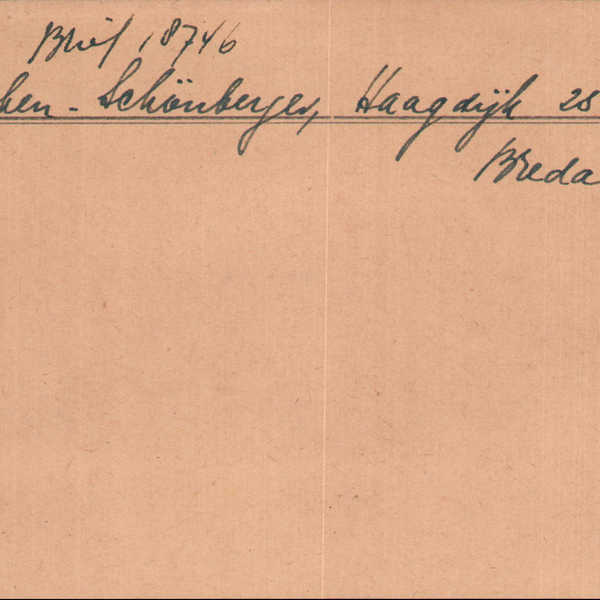 Brief 18746
hen - Schönberger, Haagdijk 25
Breda